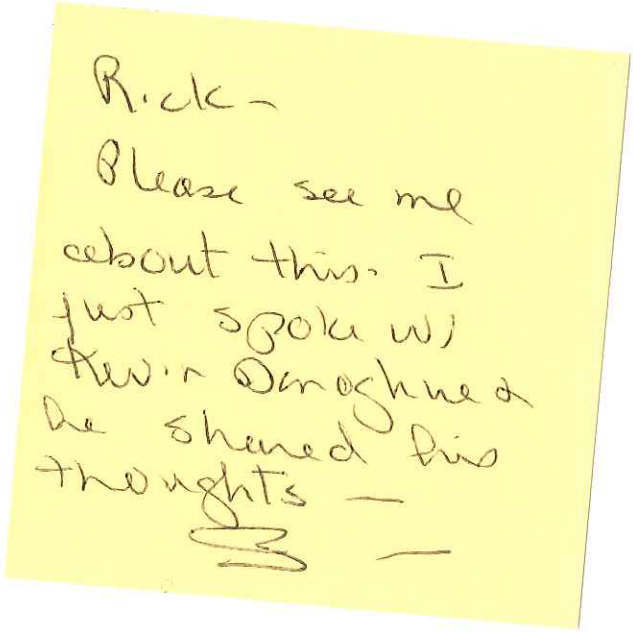 Rick-
Please see me
about this. I
just spoke w/
Kevin Donoghue &
he shared his
thoughts —
—